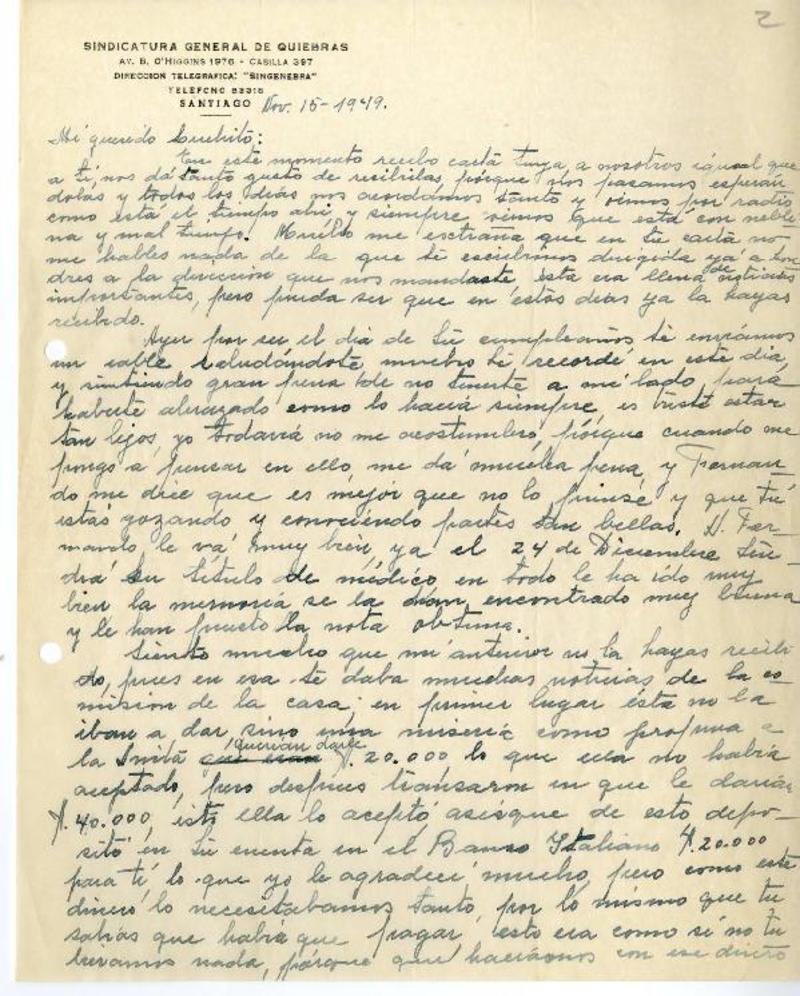 2
SINDICATURA GENERAL DE QUIEBRAS
AV. B. O'HIGGINS 1976 - CASILLA 397
DIRECCION TELEGRAFICA: "SINGENEBRA"
TELEFONO 83315
SANTIAGO Nov. 15-1949.
Mi querido Luchito:
En este momento recibo carta tuya, a nosotros igual que
a ti, nos dá tanto gusto de recibirlas, pórque nos pasamos esperan
dolas y todos los dias nos acordamos tanto y oimos por radio
como está el tiempo ahí y siempre oimos que está con nebli-
na y mal tiempo. Mucho me extraña que en tu carta no
me hables nada de la que te escribimos dirigida ya a Lon
dres a la direccion que nos mandaste ésta era llena de noticias
importantes, pero pueda ser que en estos dias ya la hayas
recibido.
Ayer por ser el dia de tu cumpleaños te enviamos
un cable saludándote mucho te recordé en este dia,
y sintiendo gran pena de no tenerte a mi lado para
haberte abrazado como lo hacia siempre, es triste estar
tan lejos, yo todavia no me acostumbro, pórque cuando me
pongo a pensar en ello, me dá mucha pena y Fernan
do me dice que es mejor que no lo piense y que tú
estás gozando y conociendo partes tan bellas. A Fer-
nando le vá muy bien, ya el 24 de Diciembre ten-
drá su titulo de médico, en todo le ha ido muy
bien la memoria se la han encontrado muy buena
y le han puesto la nota optima.
Siento mucho que mi anterior no la hayas recibi
do, pues en esa te daba muchas noticias de la co-
mision de la casa; en primer lugar ésta no la
iban a dar, sino una miseria como propina a
la Inita querian darle $. 20.000 lo que ella no habia
aceptado, pero despues transaron en que le darian
$. 40.000, ésto ella lo aceptó asisque de esto depo-
sitó en tu cuenta en el Banco Italiano $. 20.000
para tí, lo que yo le agradeci mucho, pero como este
dinero lo necesitabamos tanto, por lo mismo que tu
sabias que habia que pagar esto era como si no tu
vieramos nada, pórque que haciamos con ese dinero